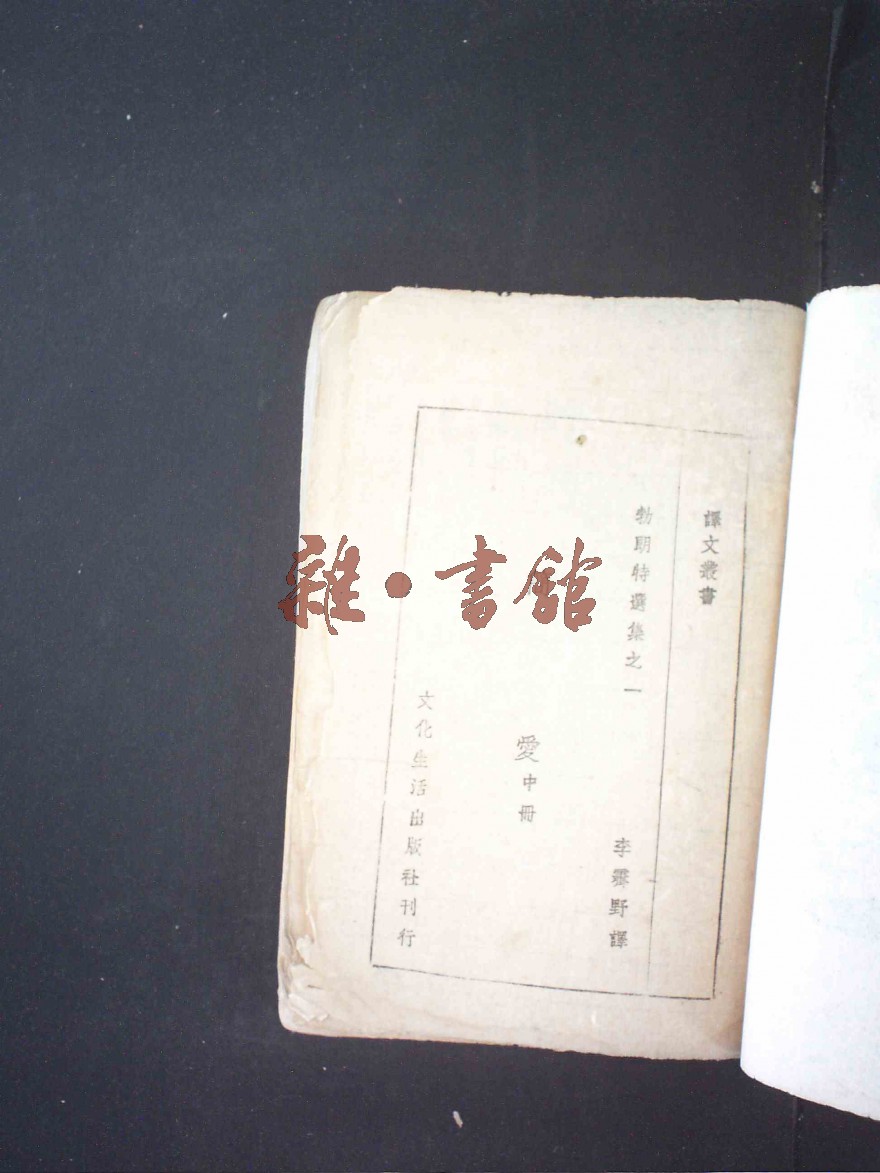 譯文叢書
勃朗特選集之一
李霽野譯
愛中冊
文化生活出版社刊行
雜·書館